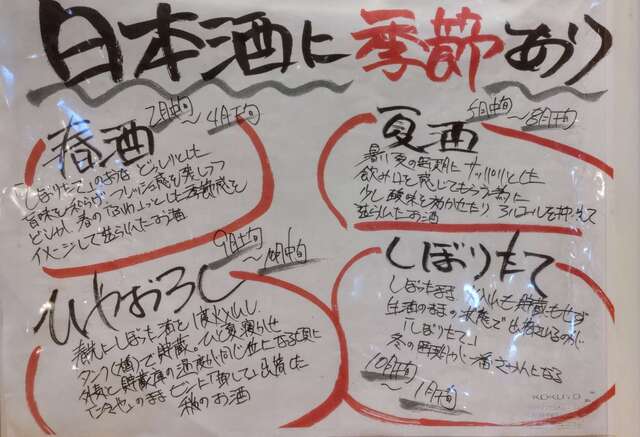 日本酒に季節あり
春酒
2月中旬～4月上旬
「しぼりたて」のような どっしりとした
旨味を和らげ フレッシュ感を楽しみつつ
どこか 春の「ふわっ」とした季節感を
イメージして造られたお酒
夏酒
5月中旬～8月上旬
暑い夏の時期に サッパリとした
飲み口を感じてもらう為に
少し酸味を効かせたり アルコールを抑えて
造られたお酒
ひやおろし
9月上旬～10月中旬
春先にしぼった酒を1度火入し
タンク(樽)で貯蔵。ひと夏寝かせ
外気と貯蔵庫の温度が同じ位になる頃に
「冷や」のまま ビンに「卸して」出荷した
秋のお酒
しぼりたて
しぼったまま 火入も貯蔵もせず
生酒のままの状態で出荷されるのが
「しぼりたて」
冬の時期が一番さかんになる
10月上旬～1月上旬
KOKUYO